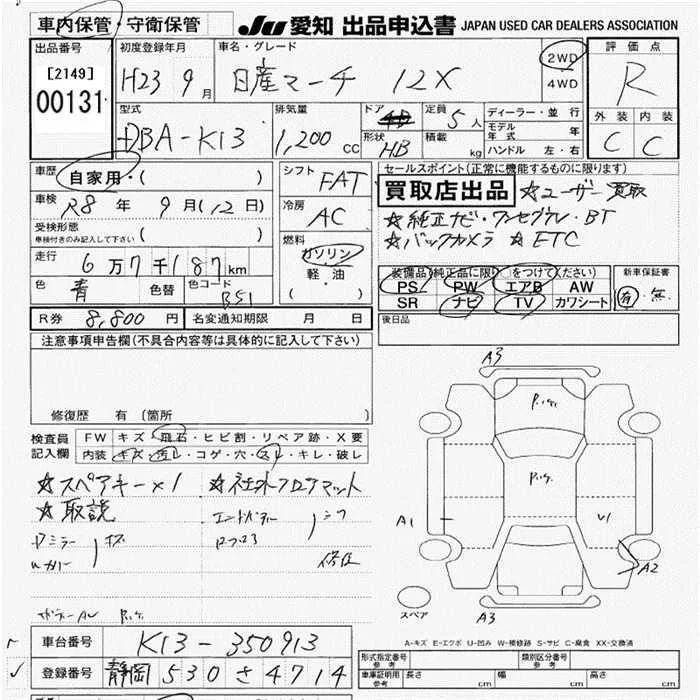 車内保管・守衛保管
JU 愛知 出品申込書 JAPAN USED CAR DEALERS ASSOCIATION
出品番号
[2149]
00131
初度登録年月
H23 9月
車名・グレード
日産マーチ 12X
2WD
4WD
評価点
R
外装 内装
C C
型式
DBA-K13
排気量
1,200 cc
ドア
形状
HB
定員
5人
積載
kg
ディーラー・並行
モデル年式 年
ハンドル 左・右
車歴
自家用・( )
車検
R8年 9月(12日)
受検形態
車検付きのみ記入して下さい ( )
走行
6万7千187km
色
青
色替
色コード
B51
シフト
FAT
冷房
AC
燃料
ガソリン
軽・油
( )
セールスポイント(正常に機能するものに限ります)
買取店出品 ☆ユーザー買取
☆純正ナビ・ワンセグTV・BT
☆バックカメラ ☆ETC
装備品(純正品に限り○をつけてください)
PS PW エアB AW
SR ナビ TV カワシート
新車保証書
有・無
R券 8,800円
名変通知期限 月 日
後日品
注意事項申告欄(不具合内容等は具体的に記入して下さい)
修復歴 有(箇所
検査員記入欄
FW キズ・飛石・ヒビ割・リペア跡・X要
内装 キズ・汚レ・コゲ・穴・スレ・キレ・破レ
☆スペアキー×1 ☆社外フロアマット
☆取説
Dミラー
キズ
修正
P.て.
P.て.
A3
A1
U1
A2
A3
スペア
A-キズ E-エクボ U-凹み W-補修跡 S-サビ C-腐食 XX-交換済
車台番号 K13-350913
登録番号 静岡 530 さ 4714
形式指定番号 参考
類別区分番号 参考
車庫証明用 参考
長さ cm
幅 cm
高さ cm